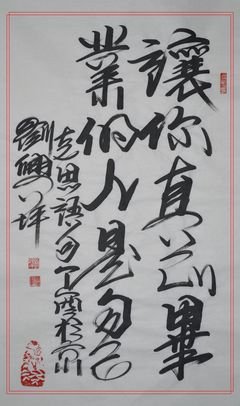 讓你真正畢
業的人是自己
克思語句丁酉於川
劉興祥